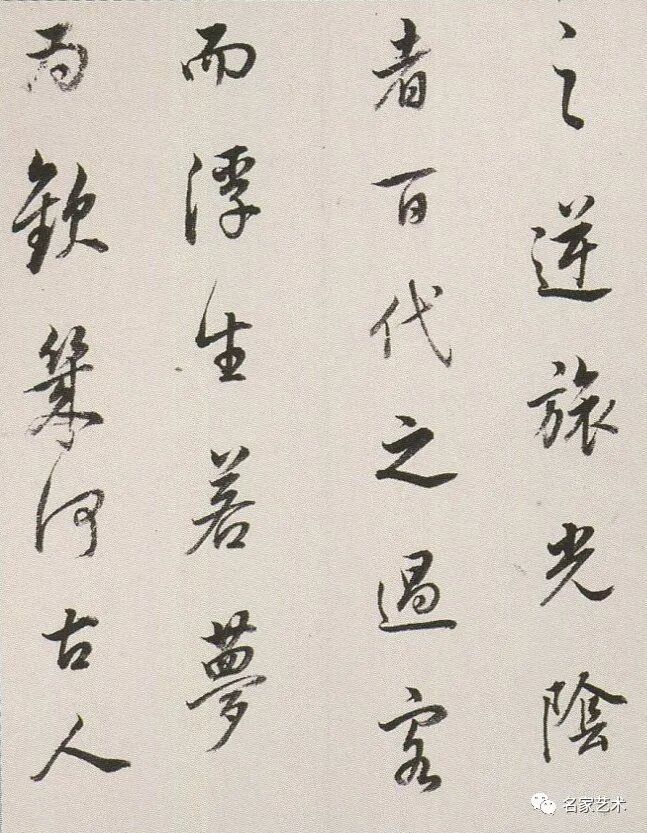 之逆旅光陰
者百代之過客
而浮生若夢
為歡幾何古人
名家艺术